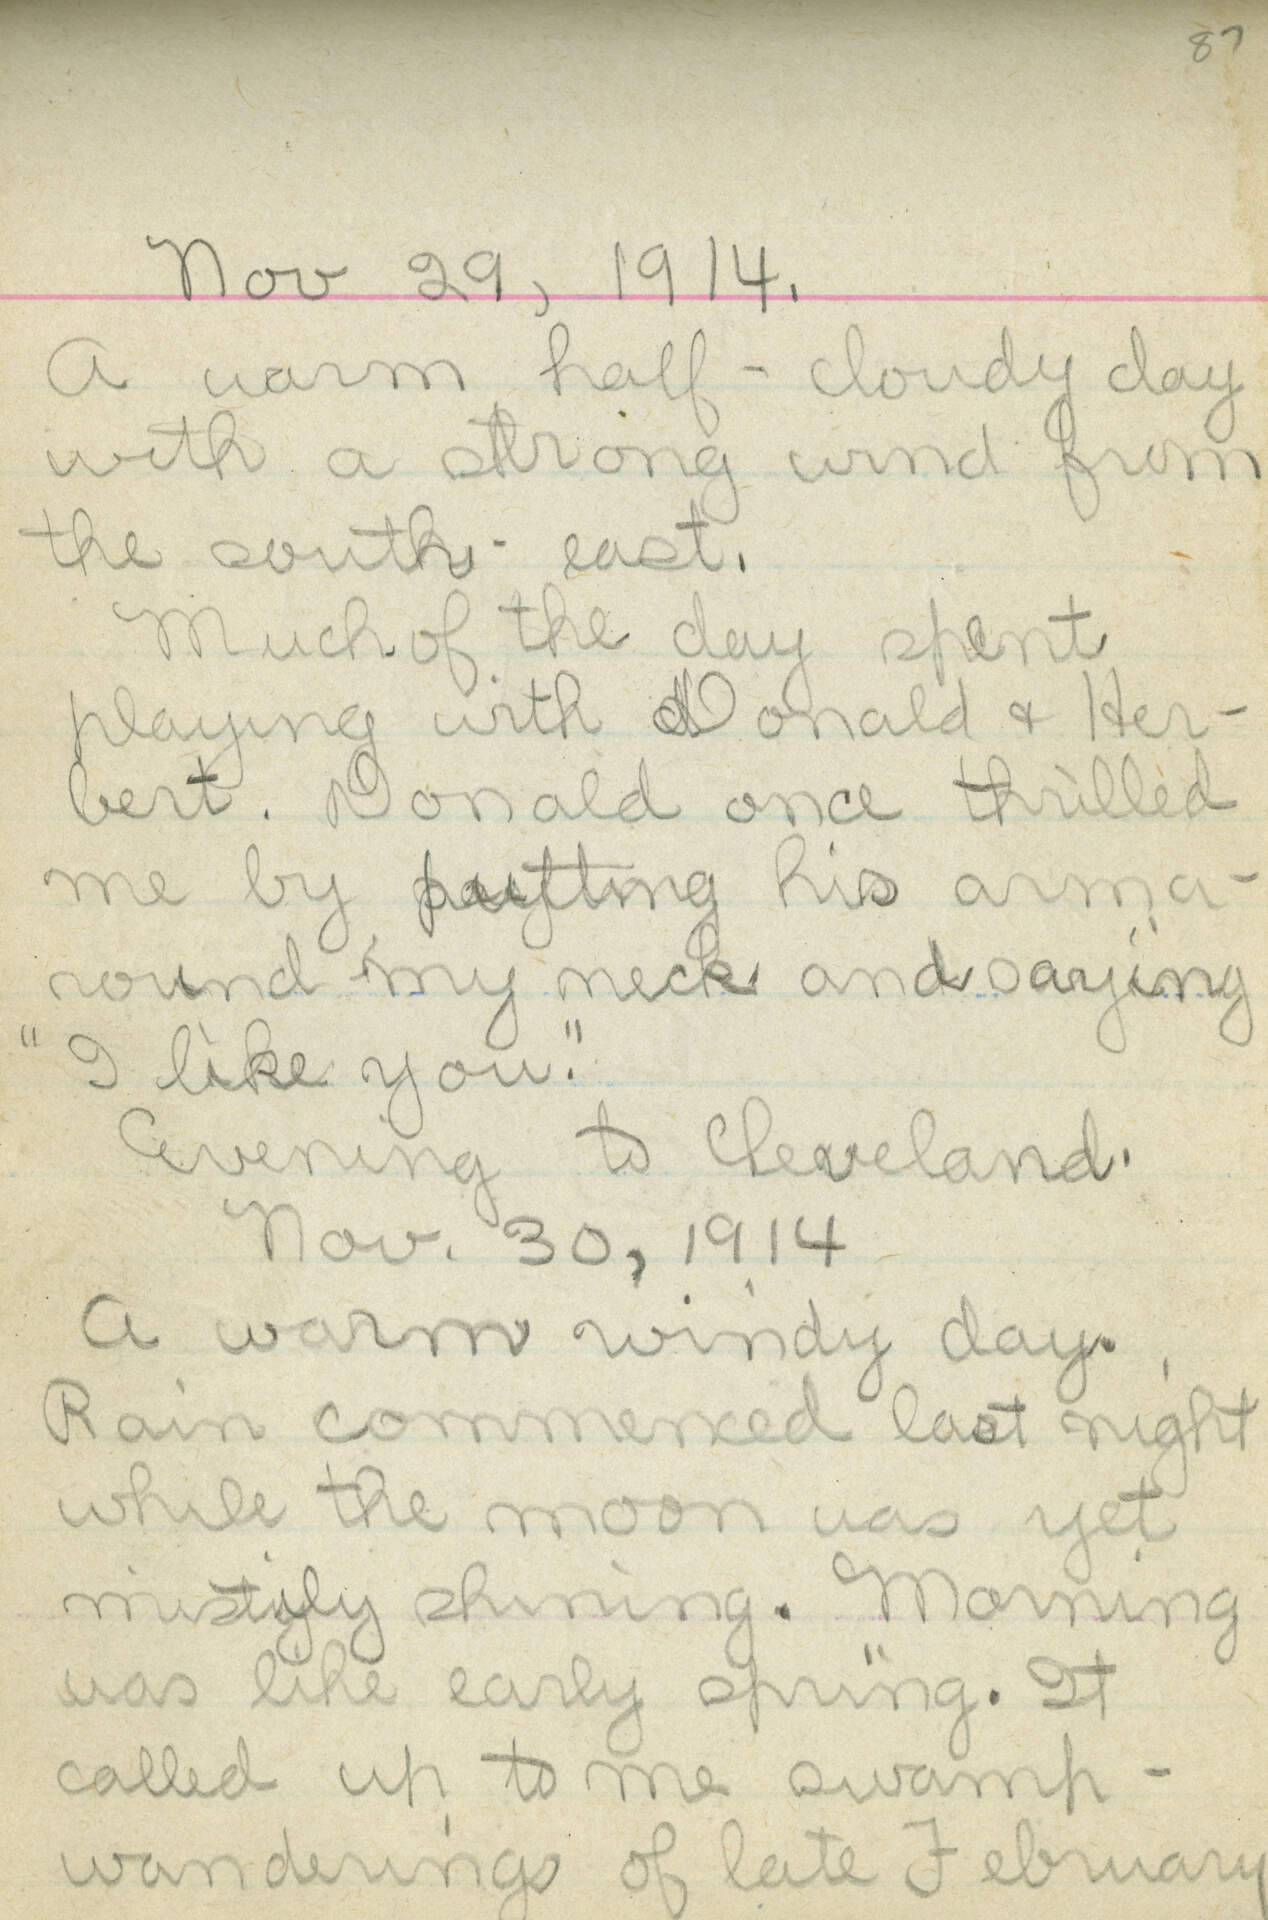 87
Nov 29, 1914.
A warm half-cloudy day
with a strong wind from
the south-east.
Much of the day spent
playing with Donald & Her-
bert. Donald once thrilled
me by putting his arm a-
round my neck and saying
"I like you."
Evening to Cleveland.
Nov. 30, 1914
A warm windy day.
Rain commenced last night
while the moon was yet
mistily shining. Morning
was like early spring. It
called up to me swamp-
wanderings of late February